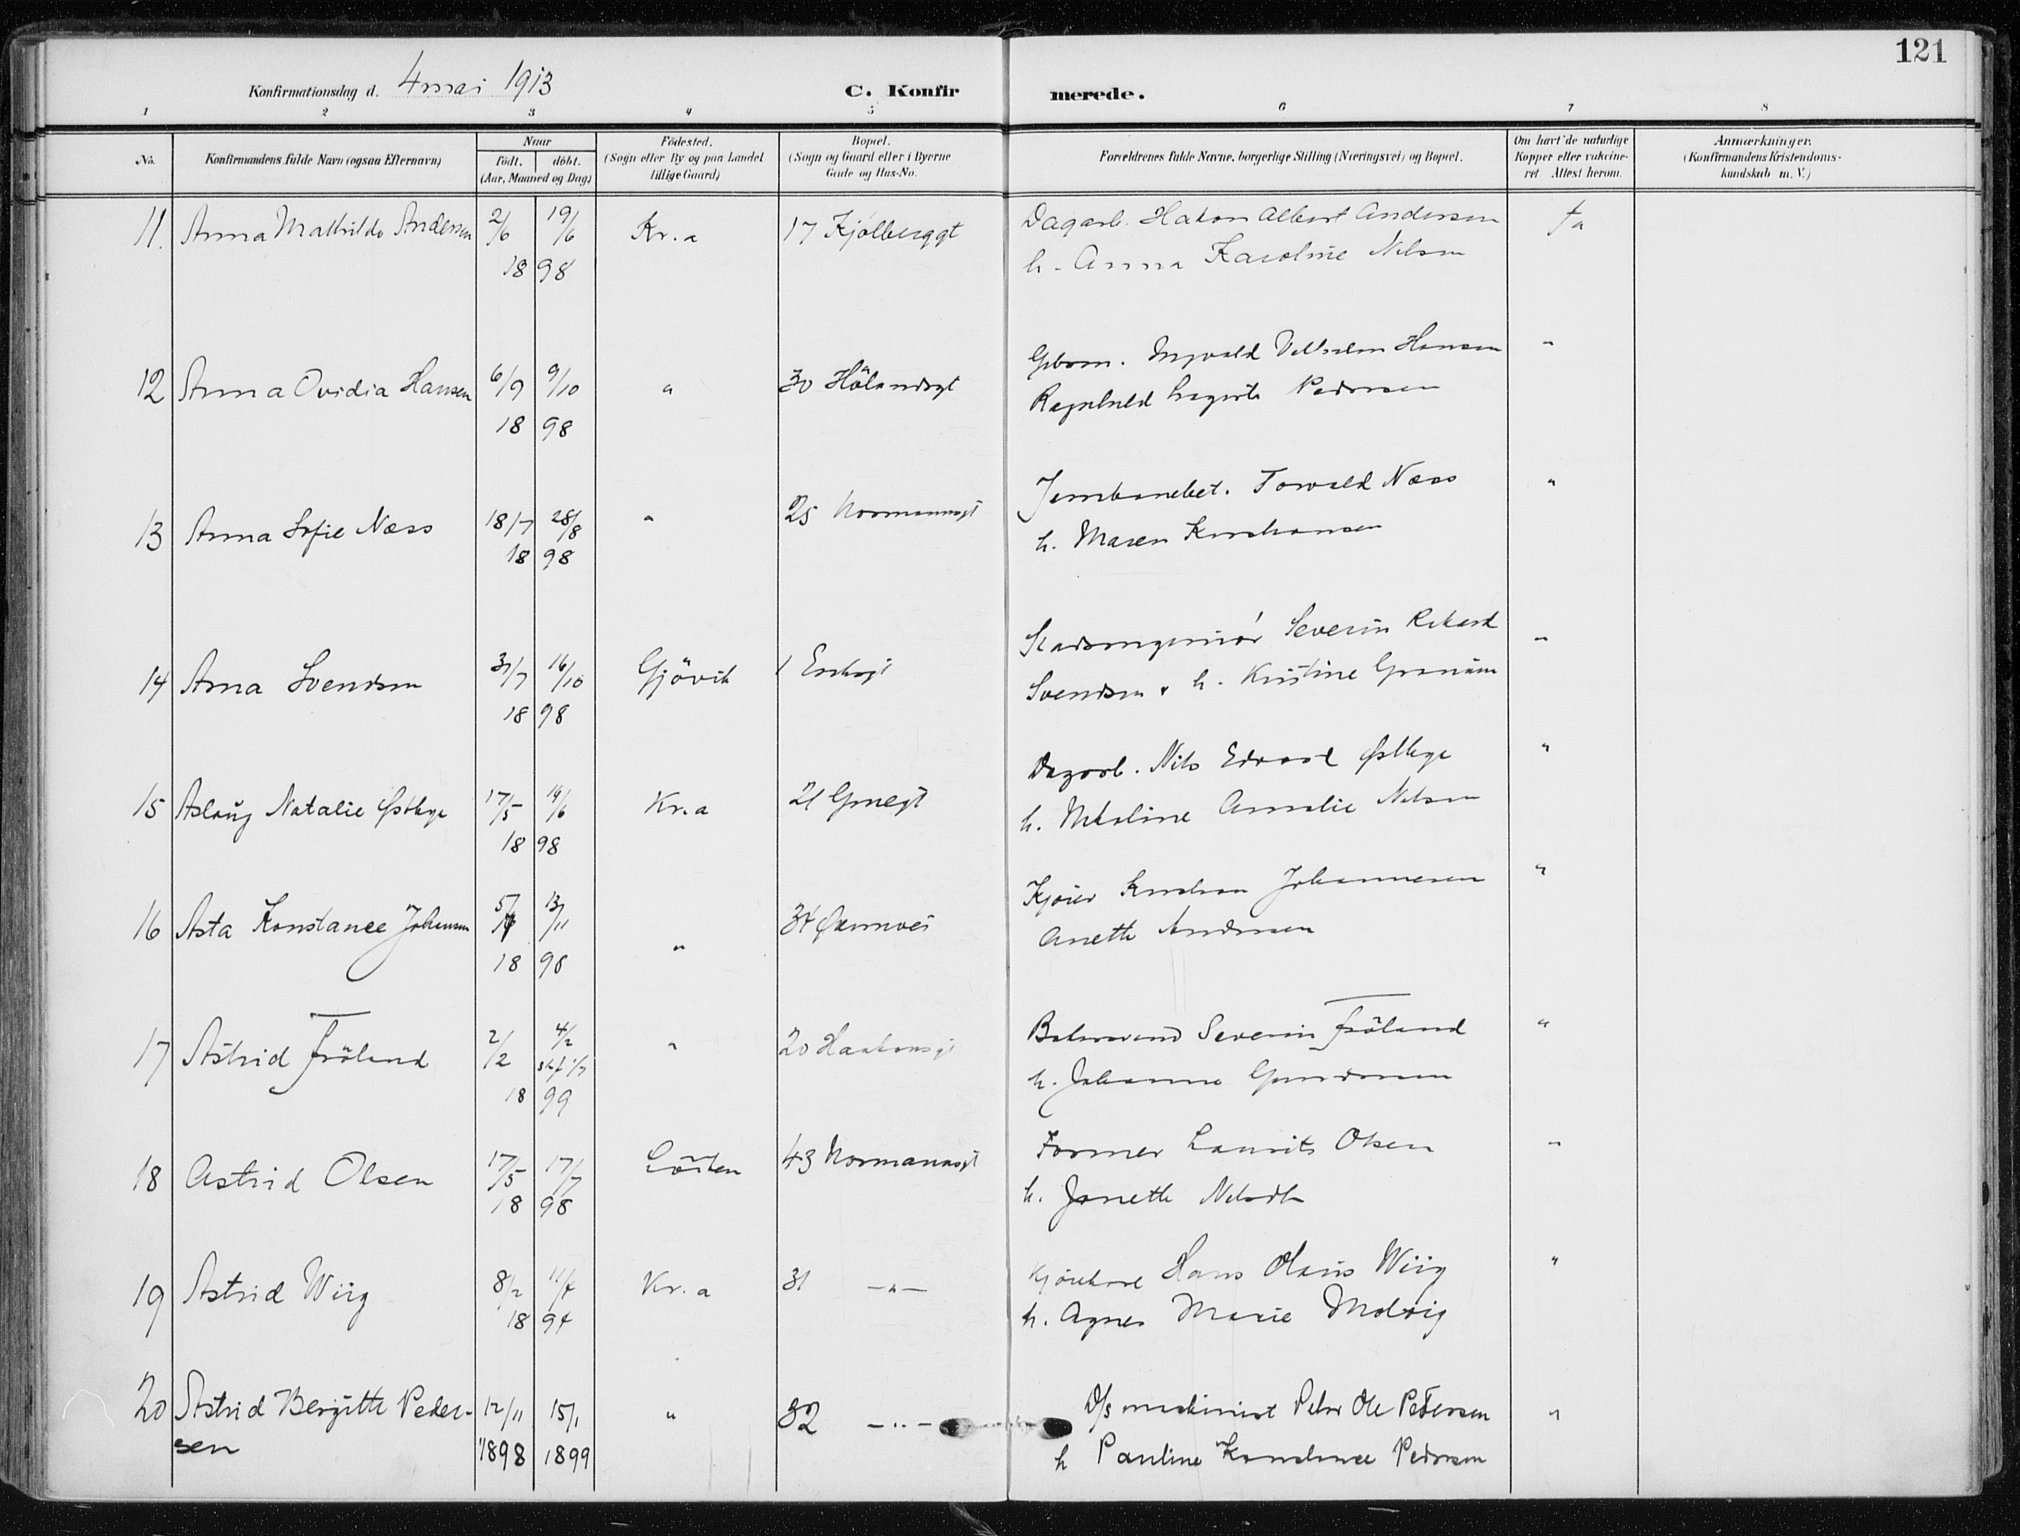 121
Konfirmationsdag d. 4 mai 1913
C. Konfirmerede.
1 2 3 4 5 6 7 8
No. Konfirmandens fulde Navn (ogsaa Efternavn) Naar født. døbt. (Aar, Maaned og Dag) Fødested. (Sogn eller By og paa Landet tillige Gaard) Bopæl. (Sogn og Gaard eller i Byerne Gade og Hus-No. Forældrenes fulde Navne, borgerlige Stilling (Næringsvei) og Bopæl. Om havt de naturlige Kopper eller vakcineret Attest herom. Anmærkninger. (Konfirmandens Kristendomskundskab m. V.)
11. Anna Mathilde Andersen 2/6 19/6 Kr.a 17 Kjølberggt Dagarb. Hakon Albert Andersen fa
18 98 h. Anna Karoline Nilsen
12 Anna Ovidia Hansen 6/9 9/10 " 30 Hölandsgt Gbom. Ingvald Vilhelm Hansen "
18 98 Ragnhild Pedersen
13 Anna Sofie Næss 18/7 28/8 " 25 Normannsgt Jernbanebet. Torvald Næss "
18 98 h. Maren Kristiansen
14 Anna Svendsen 31/7 16/10 Gjövik 1 Stadsingeniør Severin Rikard "
18 98 Svendsen h. Kristine
15 Aslaug Natalie Østbye 17/5 14/6 Kr.a 21 Dagarb. Nils Edvard Østbye "
18 98 h. Amalie Nilsen
16 Asta Konstance Johannesen 5/ 13/11 " 34 Kjører Kristian Johannesen "
18 98 Anette Andersen
17 Astrid Fröland 2/2 4/2 " 20 Haakonsgt Severin Fröland "
18 99 h. Johanne Gundersen
18 Astrid Olsen 17/5 17/7 Löiten 43 Normannsgt Former Laurits Olsen "
18 98 h. Janette
19 Astrid Wiig 8/2 11/4 Kr.a 31 —"— Hans Olaus Wiig "
18 97 h. Agnes Marie Molvig
20 Astrid Bergitte Peder- 12/11 15/1 " 32 —"— D/s maskinist Peter Ole Pedersen "
sen 1898 1899 h Pauline Konstance Pedersen